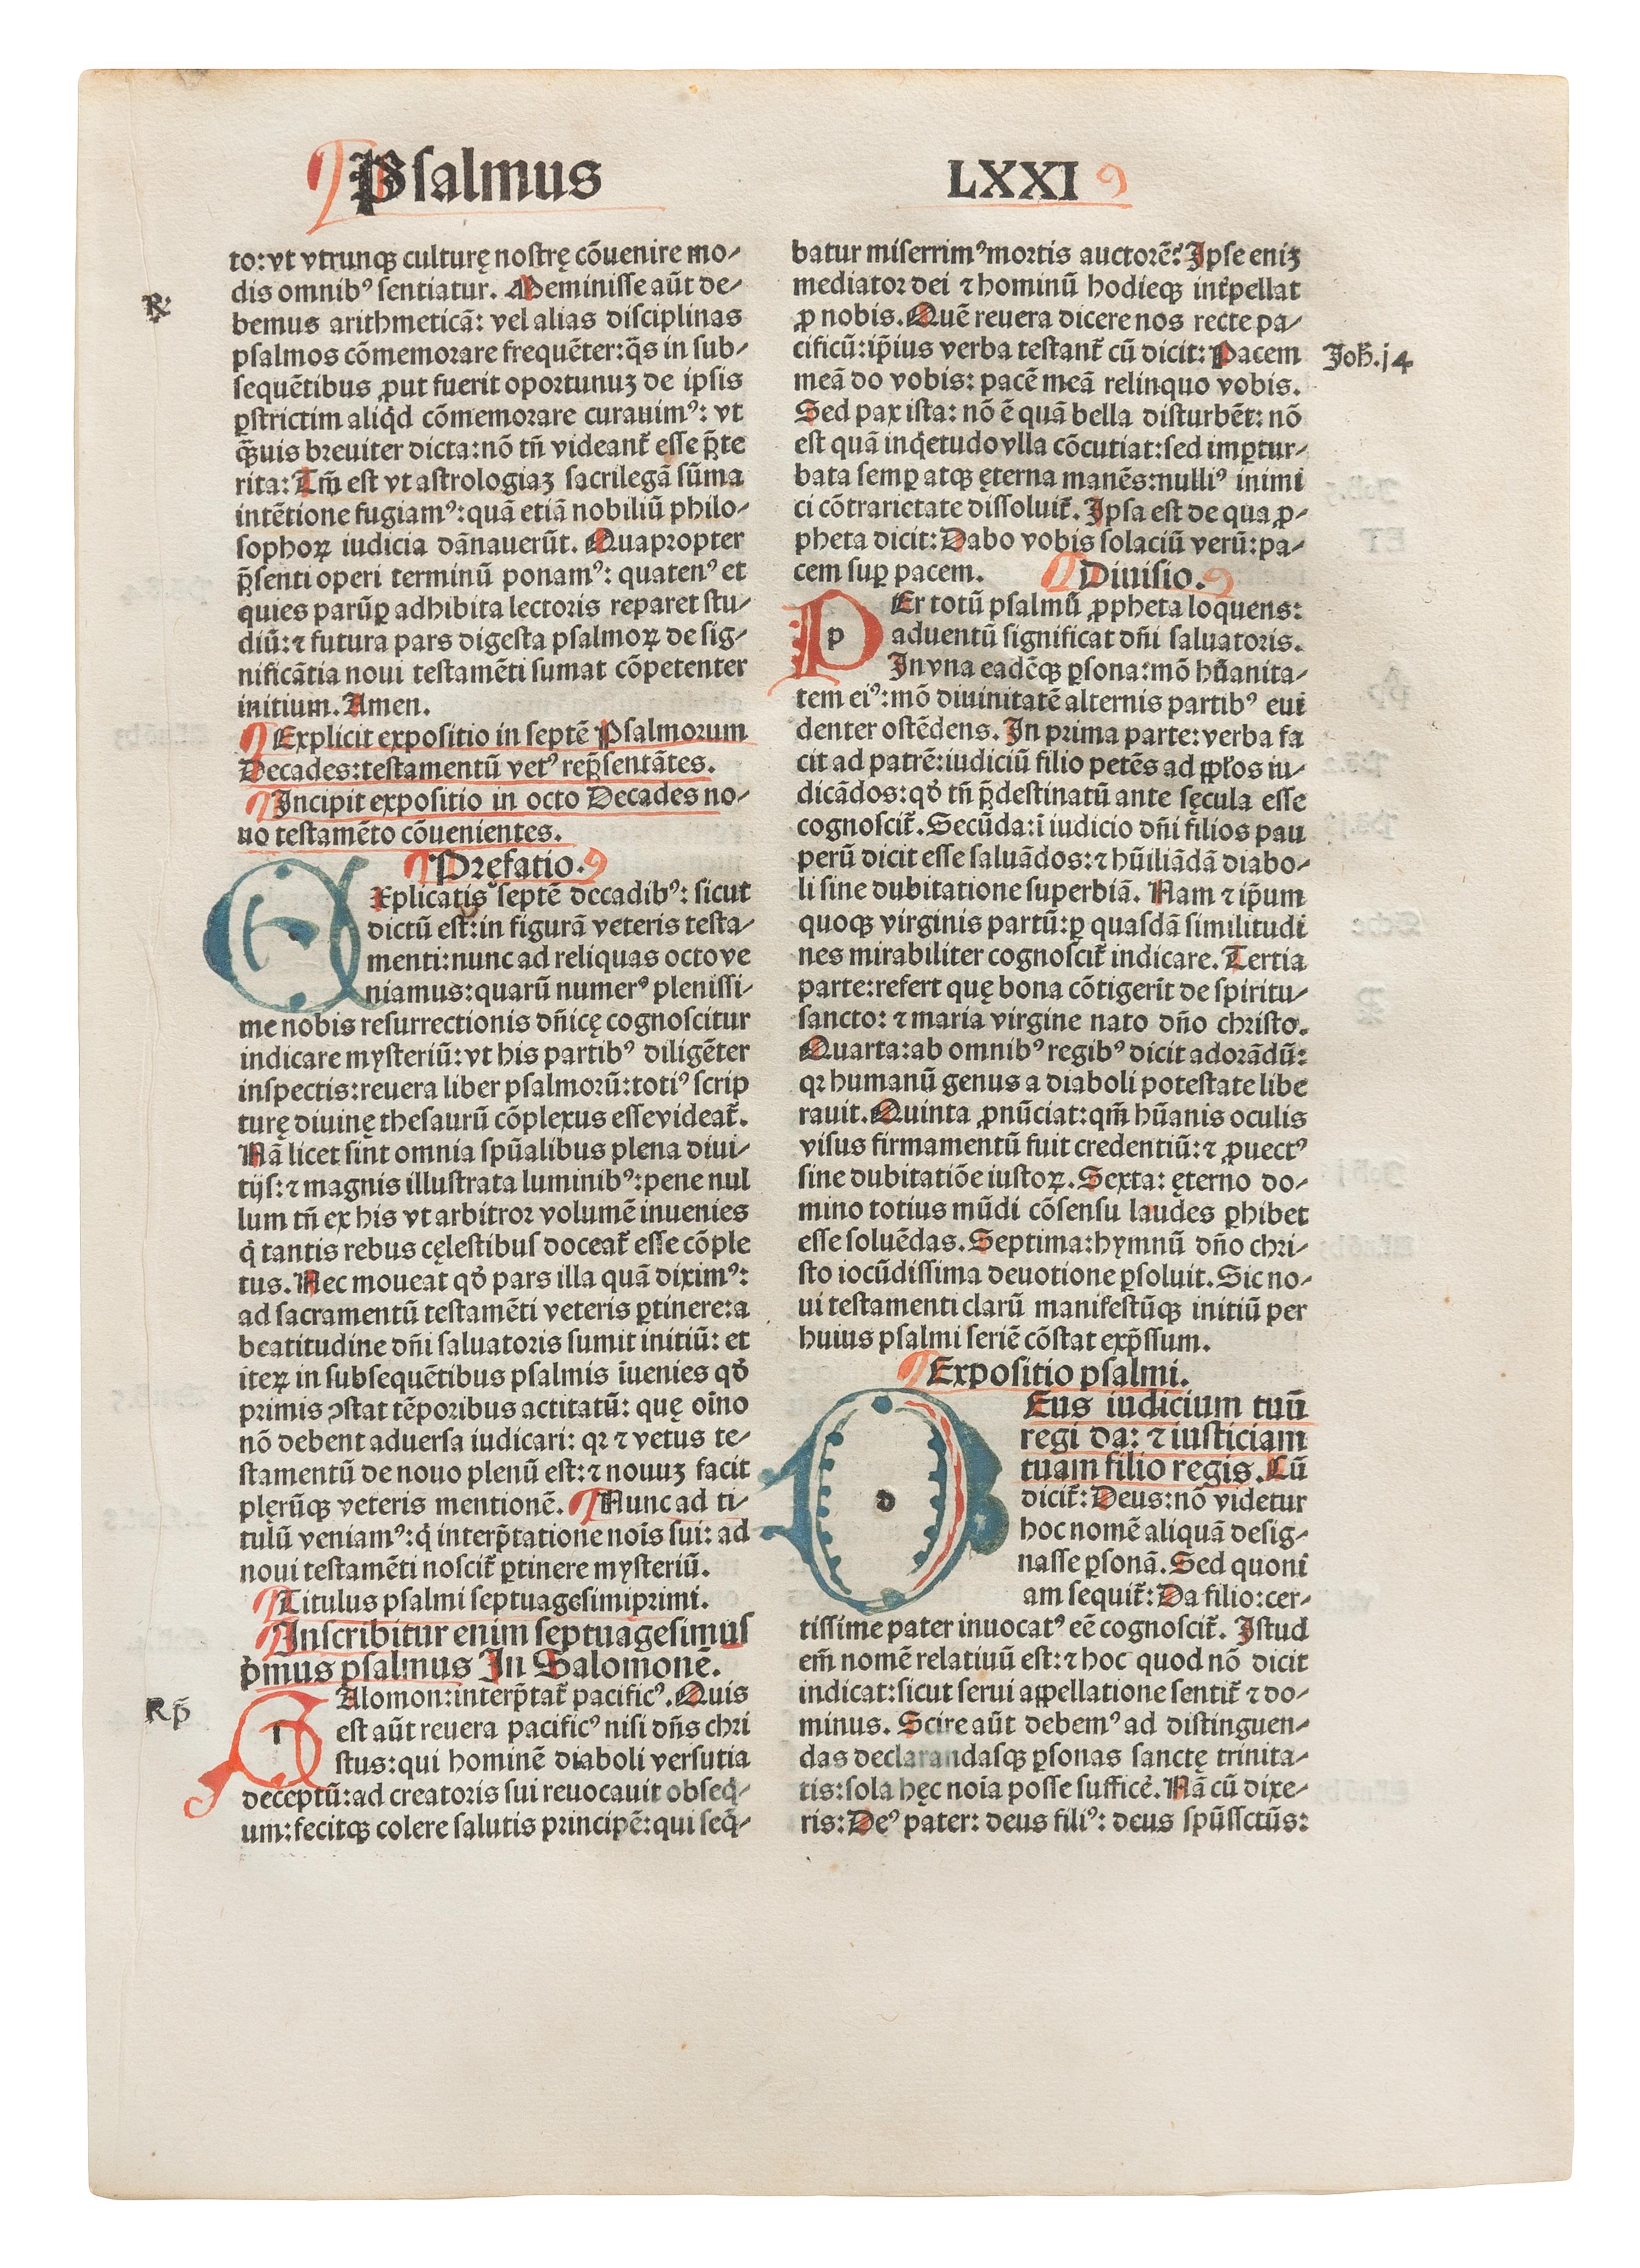 Psalmus
LXXI
to: vt vtrunqꝫ culturę nostrę cõuenire mo-
dis omnibꝰ sentiatur. Meminisse aũt de-
bemus arithmeticã: vel alias disciplinas
psalmos cõmemorare frequẽter: q̃s in sub-
sequẽtibus ꝓut fuerit oportunuꝫ de ipsis
ꝑstrictim aliqͥd cõmemorare curauimꝰ: vt
q̃ꝫuis breuiter dicta: nõ tñ videant̃ esse p̃te
rita: Tm̃ est vt astrologiaꝫ sacrilegã sũma
intẽtione fugiamꝰ: quã etiã nobiliũ philo-
sophoꝝ iudicia dãnauerũt. Quapropter
p̃senti operi terminũ ponamꝰ: quatenꝰ et
quies parũꝑ adhibita lectoris reparet stu-
diũ: ⁊ futura pars digesta psalmoꝝ de sig-
nificãtia noui testamẽti sumat cõpetenter
initium. Amen.
Explicit expositio in septẽ Psalmorum
Decades: testamentũ vetꝰ rep̃sentãtes.
Incipit expositio in octo Decades no-
uo testamẽto cõuenientes.
Pręfatio.
E
Explicatis septẽ decadibꝰ: sicut
dictũ est: in figurã veteris testa-
menti: nunc ad reliquas octo ve
niamus: quarũ numerꝰ plenissi-
me nobis resurrectionis dñicę cognoscitur
indicare mysteriũ: vt his partibꝰ diligẽter
inspectis: reuera liber psalmorũ: totiꝰ scrip
turę diuinę thesaurũ cõplexus esse videat̃.
Nã licet sint omnia spũalibus plena diui-
tijs: ⁊ magnis illustrata luminibꝰ: pene nul
lum tñ ex his vt arbitror volumẽ inuenies
qͥ tantis rebus cęlestibus doceat̃ esse cõple
tus. Nec moueat qđ pars illa quã diximꝰ:
ad sacramentũ testamẽti veteris ꝑtinere: a
beatitudine dñi saluatoris sumit initiũ: et
iteꝝ in subsequẽtibus psalmis ĩuenies qđ
primis ꝯstat tẽporibus actitatũ: quę oĩno
nõ debent aduersa iudicari: qꝛ ⁊ vetus te-
stamentũ de nouo plenũ est: ⁊ nouuꝫ facit
plęrũqꝫ veteris mentionẽ. Nunc ad ti-
tulũ veniamꝰ: qͥ interp̃tatione noĩs sui: ad
noui testamẽti noscit̃ ꝑtinere mysteriũ.
Titulus psalmi septuagesimiprimi.
Inscribitur enim septuagesimus
pͥmus psalmus In Salomonẽ.
Alomon: interp̃tat̃ pacificꝰ. Quis
est aũt reuera pacificꝰ nisi dñs chri
stus: qui hominẽ diaboli versutia
deceptũ: ad creatoris sui reuocauit obseqͥ-
um: fecitqꝫ colere salutis principẽ: qui seq̃-
R̃p
batur miserrimꝰ mortis auctorẽ? Ipse eniꝫ
mediator dei ⁊ hominũ hodieqꝫ int̃pellat
ꝓ nobis. Quẽ reuera dicere nos recte pa-
cificũ: ip̃ius verba testant̃ cũ dicit: Pacem
Joh̃. j4
meã do vobis: pacẽ meã relinquo vobis.
Sed pax ista: nõ ẽ quã bella disturbẽt: nõ
est quã inqͥetudo vlla cõcutiat: sed imꝑtur-
bata semꝑ atqꝫ ęterna manẽs: nulliꝰ inimi
ci cõtrarietate dissoluit̃. Ipsa est de qua ꝓ-
pheta dicit: Dabo vobis solaciũ verũ: pa-
cem suꝑ pacem.
Diuisio.
p
Er totũ psalmũ ꝓpheta loquens:
aduentũ significat dñi saluatoris.
In vna eadẽqꝫ ꝑsona: mõ hũanita-
tem eiꝰ: mõ diuinitatẽ alternis partibꝰ eui
denter ostẽdens. In prima parte: verba fa
cit ad patrẽ: iudiciũ filio petẽs ad pp̃los iu-
dicãdos: qđ tñ p̃destinatũ ante sęcula esse
cognoscit̃. Secũda: ĩ iudicio dñi filios pau
perũ dicit esse saluãdos: ⁊ hũiliãdã diabo-
li sine dubitatione superbiã. Nam ⁊ ip̃um
quoqꝫ virginis partũ: ꝑ quasdã similitudi
nes mirabiliter cognoscit̃ indicare. Tertia
parte: refert quę bona cõtigerĩt de spiritu-
sancto: ⁊ maria virgine nato dño christo.
Quarta: ab omnibꝰ regibꝰ dicit adorãdũ:
qꝛ humanũ genus a diaboli potestate libe
rauit. Quinta ꝓnũciat: qm̃ hũanis oculis
visus firmamentũ fuit credentiũ: ⁊ ꝓuectꝰ
sine dubitatiõe iustoꝝ. Sexta: ęterno do-
mino totius mũdi cõsensu laudes ꝑhibet
esse soluẽdas. Septima: hymnũ dño chri-
sto iocũdissima deuotione ꝑsoluit. Sic no-
ui testamenti clarũ manifestũqꝫ initiũ per
huius psalmi seriẽ cõstat exp̃ssum.
Expositio psalmi.
d
Eus iudicium tuũ
regi da: ⁊ iusticiam
tuam filio regis. Cũ
dicit̃: Deus: nõ videtur
hoc nomẽ aliquã desig-
nasse ꝑsonã. Sed quoni
am sequit̃: Da filio: cer-
tissime pater inuocatꝰ eẽ cognoscit̃. Istud
em̃ nomẽ relatiuũ est: ⁊ hoc quod nõ dicit
indicat: sicut serui appellatione sentit̃ ⁊ do-
minus. Scire aũt debemꝰ ad distinguen-
das declarandasqꝫ ꝑsonas sanctę trinita-
tis: sola hęc noĩa posse sufficẽ. Nã cũ dixe-
ris: Deꝰ pater: deus filiꝰ: deus spũssctũs: